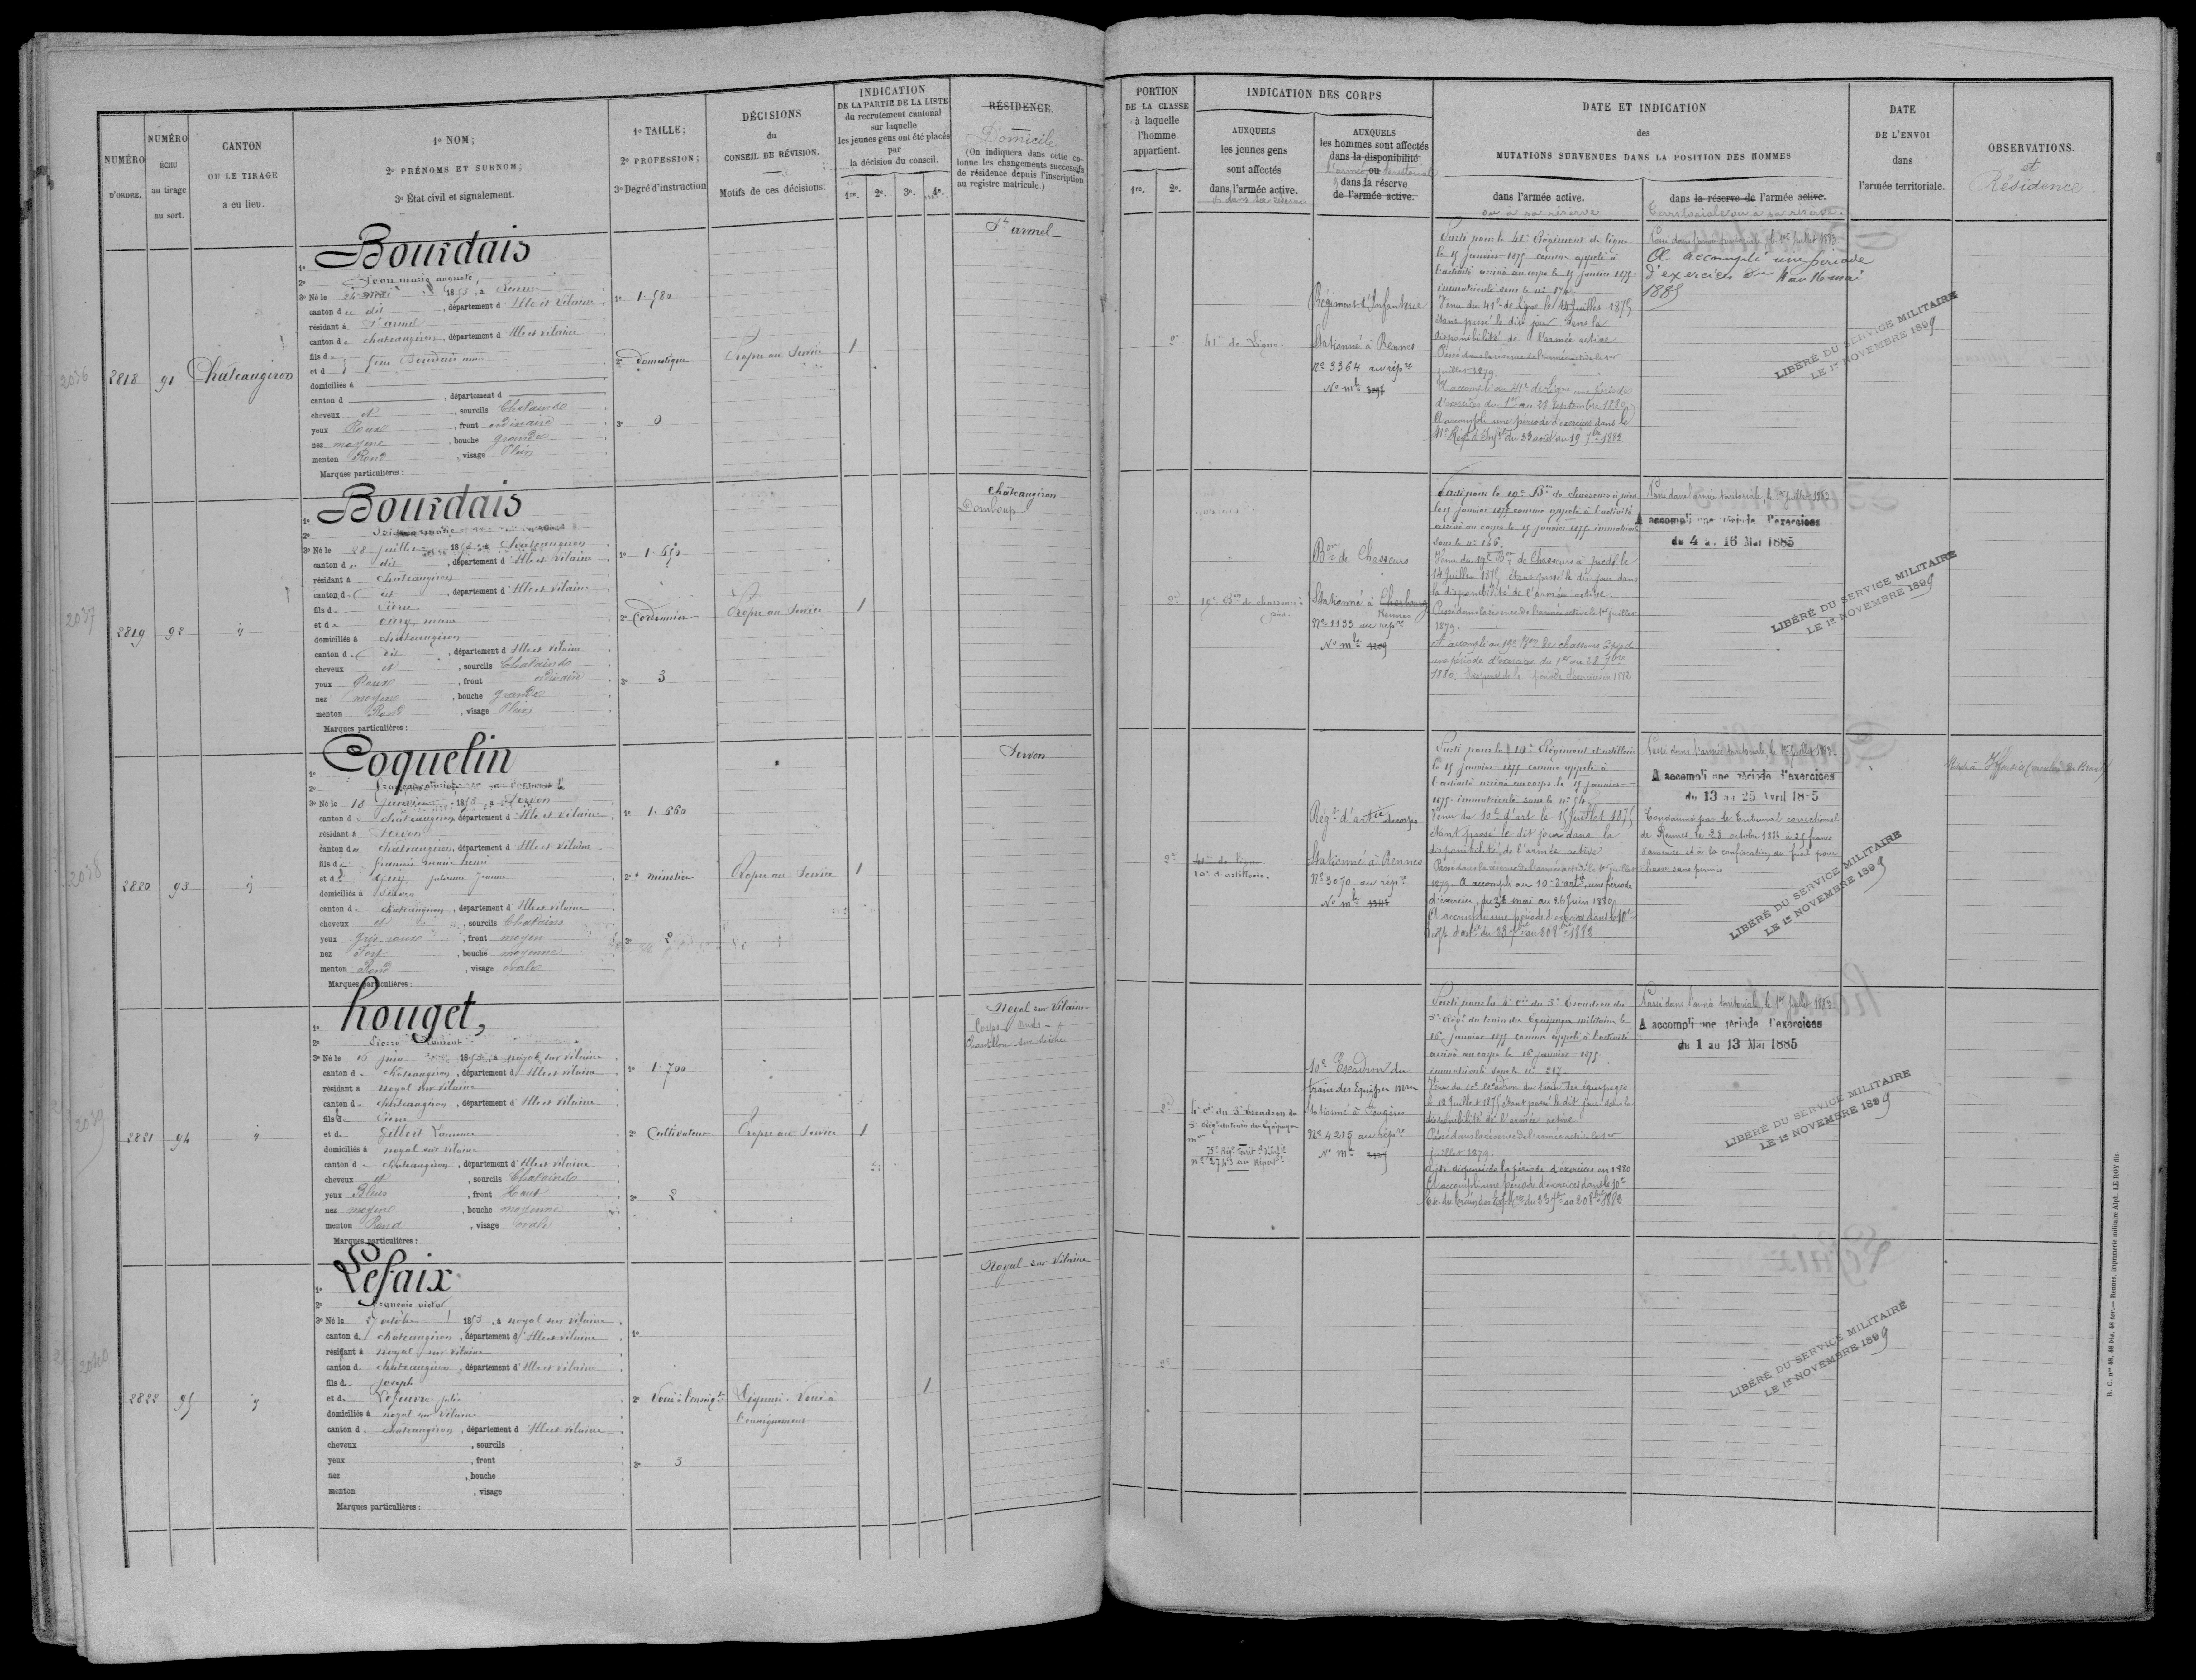 NUMÉRO
D'ORDRE.
NUMÉRO
ÉCHU
au tirage
au sort.
CANTON
OU LE TIRAGE
a eu lieu.
1º NOM;
2º PRÉNOMS ET SURNOM;
3º État civil et signalement.
1º TAILLE;
2º PROFESSION;
3º Degré d'instruction
DÉCISIONS
du
CONSEIL DE RÉVISION.
Motifs de ces décisions.
INDICATION
DE LA PARTIE DE LA LISTE
du recrutement cantonal
sur laquelle
les jeunes gens ont été placés
par
la décision du conseil.
1re. 2e. 3e. 4e.
RÉSIDENCE.
Domicile
(On indiquera dans cette co-
lonne les changements successifs
de résidence depuis l'inscription
au registre matricule.)
PORTION
DE LA CLASSE
à laquelle
l'homme
appartient.
1re. 2e.
INDICATION DES CORPS
AUXQUELS
les jeunes gens
sont affectés
dans l'armée active.
ou dans la réserve
AUXQUELS
les hommes sont affectés
dans la disponibilité
l'armée ou territoriale
dans la réserve
de l'armée active.
DATE ET INDICATION
des
MUTATIONS SURVENUES DANS LA POSITION DES HOMMES
dans l'armée active.
ou à sa réserve
dans la réserve de l'armée active.
Territoriale ou à sa réserve
DATE
DE L'ENVOI
dans
l'armée territoriale.
OBSERVATIONS.
et
Résidence.
2036
2818
91
Châteaugiron
Bourdais
2º Jean marie auguste
3º Né le 1853, à Rennes
canton d dit, département d'Ille et Vilaine
résidant à St armel
canton de chateaugiron, département d'Ille et Vilaine
fils de Jean Bourdais anne
et d
domiciliés à
canton d , département d
cheveux et , sourcils Chatains
yeux Roux , front ordinaire
nez moyen , bouche grande
menton Rond , visage Plein
Marques particulières :
1º 1.580
2º Domestique
3º 0
Propre au Service
1
St armel
2e
41e de Ligne.
Régiment d'Infanterie
Stationné à Rennes
Nº 3364 au rép.re
Nº mle
Parti pour le 41e Régiment de ligne
le 15 janvier 1875 comme appelé à
l'activité arrivé au corps le 15 janvier 1875.
immatriculé sous le nº
Venu du 41e de Ligne le Juillet 1875
étant passé le dit jour dans la
disponibilité de l'armée active
Passé dans la réserve de l'armée active le 1er
juillet 1879.
A accompli au 41e de Ligne une Période
d'exercices du 1er au 28 Septembre 1880
A accompli une période d'exercices dans le
41e Régt d'Inft. du 23 août au 19 7bre 1882
Passé dans l'armée territoriale, le 1er juillet 1883.
A accompli une période
d'exercices du 4 au 16 mai
1885
LIBÉRÉ DU SERVICE MILITAIRE
LE 1er NOVEMBRE 1899
2037
2819
92
Bourdais
3º Né le 28 juillet 1853 à Châteaugiron
canton d dit, département d'Ille et Vilaine
résidant à Chateaugiron
canton d dit, département d'Ille et Vilaine
fils de Pierre
et de marie
domiciliés à chateaugiron
canton d dit, département d'Ille et Vilaine
cheveux et , sourcils Chatains
yeux Roux , front ordinaire
nez moyen , bouche grande
menton Rond , visage Plein
Marques particulières :
1º 1.650
2º Cordonnier
3º 3
Propre au Service
1
Châteaugiron
Domloup
2e
19e Bon de chasseurs à
pied.
Bon de Chasseurs
Stationné à Cherbourg
Rennes
Nº 1193 au rép.re
Nº mle 1209
Parti pour le 19e Bon de chasseurs à pied
le 15 janvier 1875 comme appelé à l'activité
arrivé au corps le 15 janvier 1875 immatriculé
sous le nº 146.
Venu du 19e Bon de Chasseurs à pied le
14 juillet 1875 étant passé le dit jour dans
la disponibilité de l'armée active.
Passé dans la réserve de l'armée active le 1er juillet
1879.
A accompli au 19e Bon de chasseurs à pied
une période d'exercices du 1er au 28 7bre
1880. Dispensé de la période d'exercices 1882
Passé dans l'armée territoriale, le 1er juillet 1883
A accompli une période d'exercices
du 4 au 16 Mai 1885
LIBÉRÉ DU SERVICE MILITAIRE
LE 1er NOVEMBRE 1899
2038
2820
93
Coquelin
3º Né le 18 Janvier 1853 à Servon
canton de chateaugiron, département d'Ille et Vilaine
résidant à Servon
canton de chateaugiron, département d'Ille et Vilaine
fils de François marie henri
et de Guy, julienne Jeanne
domiciliés à Servon
canton de chateaugiron, département d'Ille et Vilaine
cheveux et , sourcils Chatains
yeux Gris roux , front moyen
nez Fort , bouche moyenne
menton Rond , visage ovale
Marques particulières :
1º 1.660
2º minotier
3º 2
Propre au Service
1
Servon
2e
41e de ligne
10e d'artillerie.
Régt d'artie du corps
Stationné à Rennes
Nº 3070 au rép.re
Nº mle
Parti pour le 10e Régiment d'artillerie
le 15 janvier 1875 comme appelé à
l'activité arrivé au corps le 15 janvier
1875 immatriculé sous le nº 54.
Venu du 10e d'art. le 15 juillet 1875
étant passé le dit jour dans la
disponibilité de l'armée active
Passé dans la réserve de l'armée active le 1er juillet
1879. A accompli au 10e d'artie une période
d'exercices du 31 mai au 26 juin 1880
A accompli une période d'exercices dans le 10e
Passé dans l'armée territoriale, le 1er juillet 1883.
A accompli une période d'exercices
du 13 au 25 Avril 1885
Condamné par le Tribunal correctionnel
de Rennes le 28 octobre 1884 à 25 francs
d'amende et à la confiscation du fusil pour
chasse sans permis
LIBÉRÉ DU SERVICE MILITAIRE
LE 1er NOVEMBRE 1899
2039
2821
94
houget,
2º Pierre Laurent
3º Né le 16 juin 1853, à noyal sur vilaine
canton de chateaugiron, département d'Ille et vilaine
résidant à noyal sur vilaine
canton de chateaugiron, département d'Ille et Vilaine
fils de Pierre
et de Gilbert Laurence
domiciliés à noyal sur vilaine
canton de chateaugiron, département d'Ille et vilaine
cheveux et , sourcils Chatains
yeux Bleus , front Haut
nez moyen , bouche moyenne
menton Rond , visage ovale
Marques particulières :
1º 1.700
2º Cultivateur
3º 2
Propre au Service
1
Noyal sur Vilaine
Corps-Nuds
Chantillon sur Seiche
2e
4e Cie du 5e Escadron du
3e Régt du train des Equipages
10e Escadron du
train des Equip.es mres
stationné à Fougères
Nº 4215 au rép.re
Nº mle
Parti pour la 4e Cie du 5e Escadron du
3e Régt du train des Equipages militaires le
16 janvier 1875 comme appelé à l'activité
arrivé au corps le 18 janvier 1875.
immatriculé sous le nº 217.
Venu du 10e escadron du train des équipages
le 12 juillet 1875 étant passé le dit jour dans la
disponibilité de l'armée active
Passé dans la réserve de l'armée active le 1er
juillet 1879.
A été dispensé de la période d'exercices en 1880
A accompli une période d'exercices dans le 10e
Passé dans l'armée territoriale, le 1er juillet 1883
A accompli une période d'exercices
du 1 au 13 Mai 1885
LIBÉRÉ DU SERVICE MILITAIRE
LE 1er NOVEMBRE 1899
2040
2822
95
Lefaix
2º François victor
3º Né le octobre 1853, à noyal sur vilaine
canton de chateaugiron, département d'Ille et vilaine
résidant à noyal sur vilaine
canton de chateaugiron, département d'Ille et vilaine
fils de joseph
et de Lefeuvre julie
domiciliés à noyal sur vilaine
canton de chateaugiron, département d'Ille et vilaine
cheveux , sourcils
yeux , front
nez , bouche
menton , visage
Marques particulières :
1º
2º Voué à l'enseigt
3º 3
Voué à
l'enseignement
1
Noyal sur Vilaine
2e
LIBÉRÉ DU SERVICE MILITAIRE
LE 1er NOVEMBRE 1899
R. C. nos 40, 48 bis, 48 ter. — Rennes, imprimerie militaire Alph. LE ROY fils